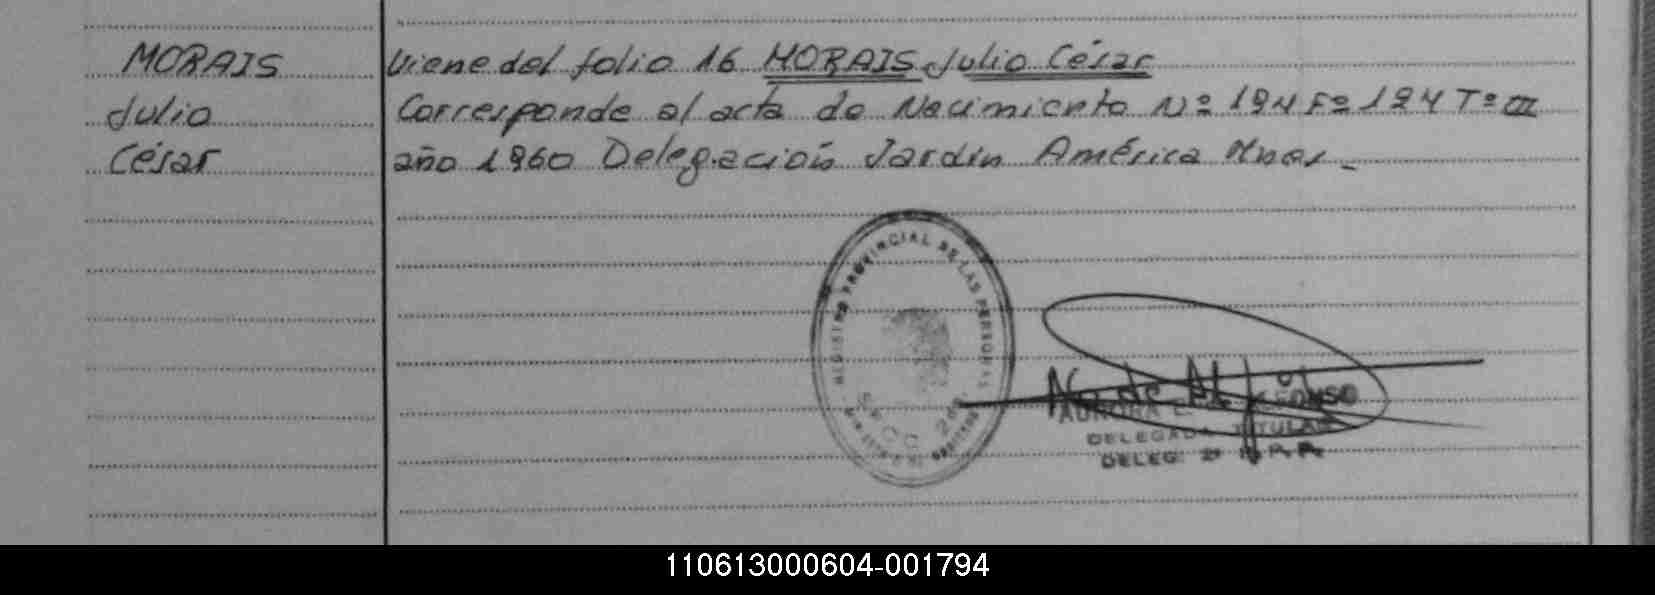 MORAIS
Julio
César
Viene del folio 16 MORAIS Julio César
Corresponde al acta de Nacimiento Nº 194 Fº 194 Tº III
año 1960 Delegación Jardín América Mnes.-
REGISTRO PROVINCIAL DE LAS PERSONAS
AURORA
DELEGADA TITULAR
DELEG. 2ª R.P.P.
110613000604-001794